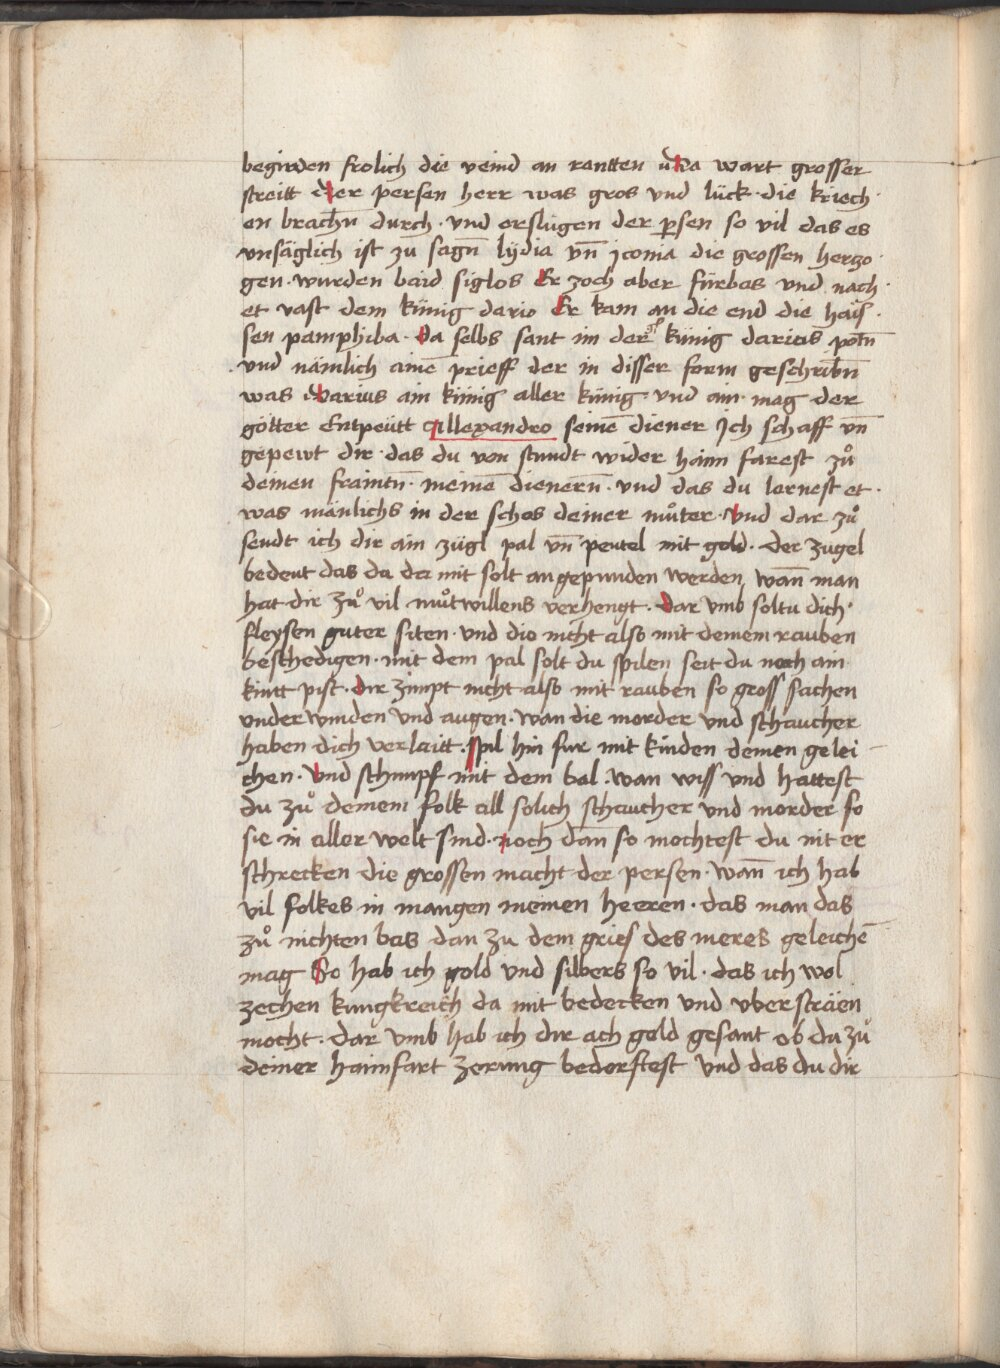 begirden frolich die veind an rantten Da wart grosser
streitt der persen herr was gros vnd lück · die kriech ·
en brachn̄ durch · vnd erslügen der ꝑsen so vil das es
vnsäglich ist zu sagn̄ lydia vn̄ jconia die grossen herzo ·
gen · wurden baid siglos Er zoch aber fürbas vnd nach ·
et vast dem künig dario Er kam an die end die hais ·
sen pamphiba · Da selbs sant im der künig darius potn̄
vnd nämlich ainē prieff der in disser form geschribn̄
was Darius ain künig aller künig · vnd ain · mag der
götter Entpeütt allexandro seinē diener Ich schaff vn̄
gepewt dir · das du von stundt wider haim farest zů
deinen fraintn̄ · meinē dienern̄ · vnd das du lernest et ·
was mänlichs in der schos deiner můter · Vnd dar zů
sendt ich dir ain zügl pal vn̄ peutel mit gold · der zugel
bedeut das da da mit solt an gepunden werden, wan̄ man
hat dir zů vil můtwillens verhengt · Dar vmb soltu dich ·
fleysen guter siten · vnd die nicht also mit deinem rauben
beschedigen · mit dem pal solt du spilen seit du noch ain
kintt pist · Dir zimpt nicht also mit rauben so gross sachen
vnder winden vnd augen · wan die morder vnd schaucher
haben dich verlaitt · spil hin fur mit kinden deinen gelei
chen · Vnd schimpf mit dem bal · wan wiss vnd hattest
du zů deinem folk all solich schaucher vnd morder so
sie in aller welt sind · noch dan̄ so mochtest du nit er
schrecken die grossen macht der persen · wan̄ ich hab
vil folkes in mangen meinen heeren · das man das
zů nichten bas dan zu dem gries des meres geleichē
mag So hab ich gold vnd silbers so vil · das ich wol
zechen kungkreich da mit bedecken vnd vber sträen
mocht · dar vmb hab ich dir ach gold gesant ob du zů
deiner haimfart zerung bedorftest vnd das du dir